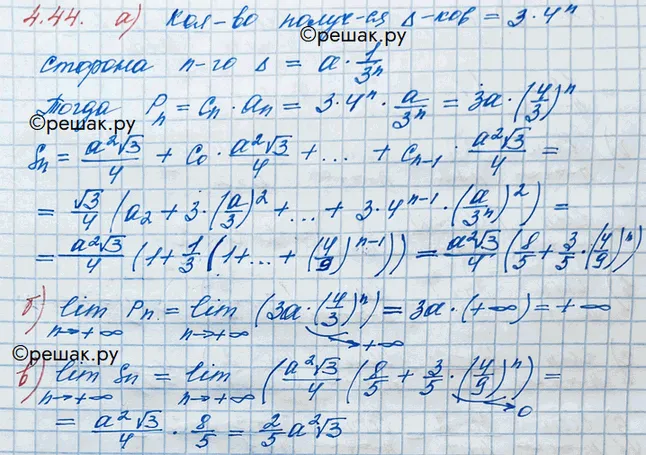 4.44. а) Кол-во получ-ся Δ-ков = 3·4ⁿ
©решак.ру
сторона n-го Δ = a · 1/3ⁿ
Тогда Pₙ = Cₙ · aₙ = 3·4ⁿ · a/3ⁿ = 3a·(4/3)ⁿ
©решак.ру
Sₙ = a²√3/4 + C₀ · a²√3/4 + ... + Cₙ₋₁ · a²√3/4 =
= √3/4 (a₂ + 3·(a/3)² + ... + 3·4ⁿ⁻¹ · (a/3ⁿ)²) =
= a²√3/4 (1 + 1/3 (1 + ... + (4/9)ⁿ⁻¹)) = a²√3/4 (8/5 + 3/5 · (4/9)ⁿ)
б) lim n→+∞ Pₙ = lim n→+∞ (3a·(4/3)ⁿ) = 3a·(+∞) = +∞
→+∞
©решак.ру
в) lim n→+∞ Sₙ = lim n→+∞ (a²√3/4 (8/5 + 3/5 · (4/9)ⁿ) =
→0
= a²√3/4 · 8/5 = 2/5 a²√3